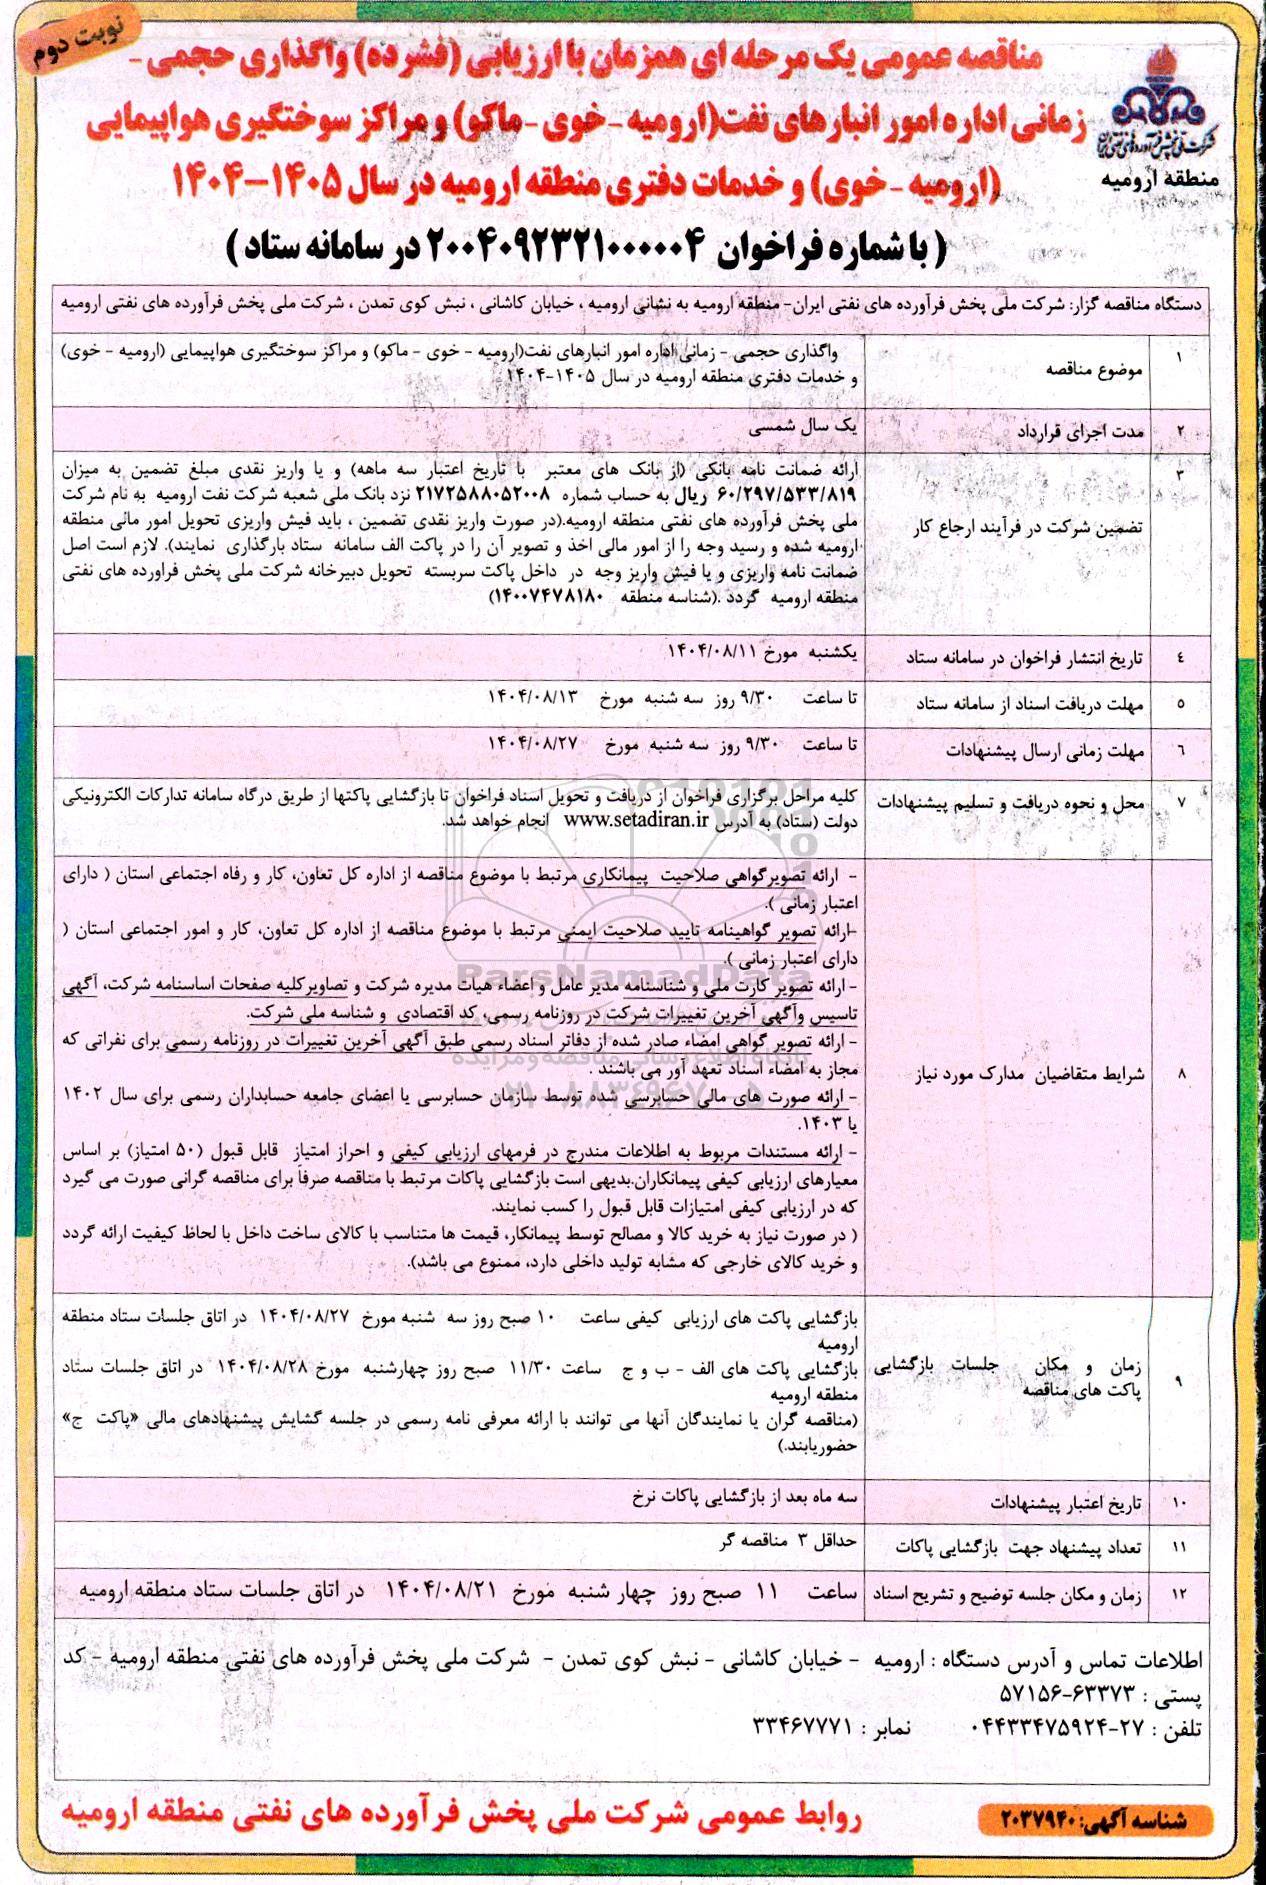 نوبت دوم
مناقصه عمومی یک مرحله ای همزمان با ارزیابی (فشرده) واگذاری حجمی -
زمانی اداره امور انبارهای نفت(ارومیه - خوی - ماکو) و مراکز سوختگیری هواپیمایی
(ارومیه - خوی) و خدمات دفتری منطقه ارومیه در سال ۱۴۰۵-۱۴۰۴
( با شماره فراخوان ۲۰۰۴۰۹۲۳۲۱۰۰۰۰۰۴ در سامانه ستاد )
شرکت ملی پخش فرآورده های نفتی ایران
منطقه ارومیه
دستگاه مناقصه گزار: شرکت ملی پخش فرآورده های نفتی ایران- منطقه ارومیه به نشانی ارومیه ، خیابان کاشانی ، نبش کوی تمدن ، شرکت ملی پخش فرآورده های نفتی ارومیه
۱
موضوع مناقصه
واگذاری حجمی - زمانی اداره امور انبارهای نفت(ارومیه - خوی - ماکو) و مراکز سوختگیری هواپیمایی (ارومیه - خوی)
و خدمات دفتری منطقه ارومیه در سال ۱۴۰۵-۱۴۰۴
۲
مدت اجرای قرارداد
یک سال شمسی
۳
تضمین شرکت در فرآیند ارجاع کار
ارائه ضمانت نامه بانکی (از بانک های معتبر با تاریخ اعتبار سه ماهه) و یا واریز نقدی مبلغ تضمین به میزان
۶۰/۲۹۷/۵۳۳/۸۱۹ ریال به حساب شماره ۲۱۷۲۵۸۸۰۵۲۰۰۸ نزد بانک ملی شعبه شرکت نفت ارومیه به نام شرکت
ملی پخش فرآورده های نفتی منطقه ارومیه.(در صورت واریز نقدی تضمین ، باید فیش واریزی تحویل امور مالی منطقه
ارومیه شده و رسید وجه را از امور مالی اخذ و تصویر آن را در پاکت الف سامانه ستاد بارگذاری نمایند). لازم است اصل
ضمانت نامه واریزی و یا فیش واریز وجه در داخل پاکت سربسته تحویل دبیرخانه شرکت ملی پخش فراورده های نفتی
منطقه ارومیه گردد .(شناسه منطقه ۱۴۰۰۷۴۷۸۱۸۰)
۴
تاریخ انتشار فراخوان در سامانه ستاد
یکشنبه مورخ ۱۴۰۴/۰۸/۱۱
۵
مهلت دریافت اسناد از سامانه ستاد
تا ساعت ۹/۳۰ روز سه شنبه مورخ ۱۴۰۴/۰۸/۱۳
۶
مهلت زمانی ارسال پیشنهادات
تا ساعت ۹/۳۰ روز سه شنبه مورخ ۱۴۰۴/۰۸/۲۷
۷
محل و نحوه دریافت و تسلیم پیشنهادات
کلیه مراحل برگزاری فراخوان از دریافت و تحویل اسناد فراخوان تا بازگشایی پاکتها از طریق درگاه سامانه تدارکات الکترونیکی
دولت (ستاد) به آدرس www.setadiran.ir انجام خواهد شد.
۸
شرایط متقاضیان مدارک مورد نیاز
- ارائه تصویرگواهی صلاحیت پیمانکاری مرتبط با موضوع مناقصه از اداره کل تعاون، کار و رفاه اجتماعی استان ( دارای
اعتبار زمانی ).
-ارائه تصویر گواهینامه تایید صلاحیت ایمنی مرتبط با موضوع مناقصه از اداره کل تعاون، کار و امور اجتماعی استان (
دارای اعتبار زمانی ).
- ارائه تصویر کارت ملی و شناسنامه مدیر عامل و اعضاء هیات مدیره شرکت و تصاویرکلیه صفحات اساسنامه شرکت، آگهی
تاسیس وآگهی آخرین تغییرات شرکت در روزنامه رسمی، کد اقتصادی و شناسه ملی شرکت.
- ارائه تصویر گواهی امضاء صادر شده از دفاتر اسناد رسمی طبق آگهی آخرین تغییرات در روزنامه رسمی برای نفراتی که
مجاز به امضاء اسناد تعهد آور می باشند .
- ارائه صورت های مالی حسابرسی شده توسط سازمان حسابرسی یا اعضای جامعه حسابداران رسمی برای سال ۱۴۰۲
یا ۱۴۰۳.
- ارائه مستندات مربوط به اطلاعات مندرج در فرمهای ارزیابی کیفی و احراز امتیاز قابل قبول (۵۰ امتیاز) بر اساس
معیارهای ارزیابی کیفی پیمانکاران.بدیهی است بازگشایی پاکات مرتبط با مناقصه صرفاً برای مناقصه گرانی صورت می گیرد
که در ارزیابی کیفی امتیازات قابل قبول را کسب نمایند.
( در صورت نیاز به خرید کالا و مصالح توسط پیمانکار، قیمت ها متناسب با کالای ساخت داخل با لحاظ کیفیت ارائه گردد
و خرید کالای خارجی که مشابه تولید داخلی دارد، ممنوع می باشد).
ParsNamadData
پایگاه اطلاع رسانی مناقصه و مزایده
۹
زمان و مکان جلسات بازگشایی
پاکت های مناقصه
بازگشایی پاکت های ارزیابی کیفی ساعت ۱۰ صبح روز سه شنبه مورخ ۱۴۰۴/۰۸/۲۷ در اتاق جلسات ستاد منطقه
ارومیه
بازگشایی پاکت های الف - ب و ج ساعت ۱۱/۳۰ صبح روز چهارشنبه مورخ ۱۴۰۴/۰۸/۲۸ در اتاق جلسات ستاد
منطقه ارومیه
(مناقصه گران یا نمایندگان آنها می توانند با ارائه معرفی نامه رسمی در جلسه گشایش پیشنهادهای مالی «پاکت ج»
حضوریابند.)
۱۰
تاریخ اعتبار پیشنهادات
سه ماه بعد از بازگشایی پاکات نرخ
۱۱
تعداد پیشنهاد جهت بازگشایی پاکات
حداقل ۳ مناقصه گر
۱۲
زمان و مکان جلسه توضیح و تشریح اسناد
ساعت ۱۱ صبح روز چهار شنبه مورخ ۱۴۰۴/۰۸/۲۱ در اتاق جلسات ستاد منطقه ارومیه
اطلاعات تماس و آدرس دستگاه : ارومیه - خیابان کاشانی - نبش کوی تمدن - شرکت ملی پخش فرآورده های نفتی منطقه ارومیه - کد
پستی : ۶۳۳۷۳-۵۷۱۵۶
تلفن : ۲۷-۰۴۴۳۳۴۷۵۹۲۴ نمابر : ۳۳۴۶۷۷۷۱
روابط عمومی شرکت ملی پخش فرآورده های نفتی منطقه ارومیه
شناسه آگهی: ۲۰۳۷۹۴۰